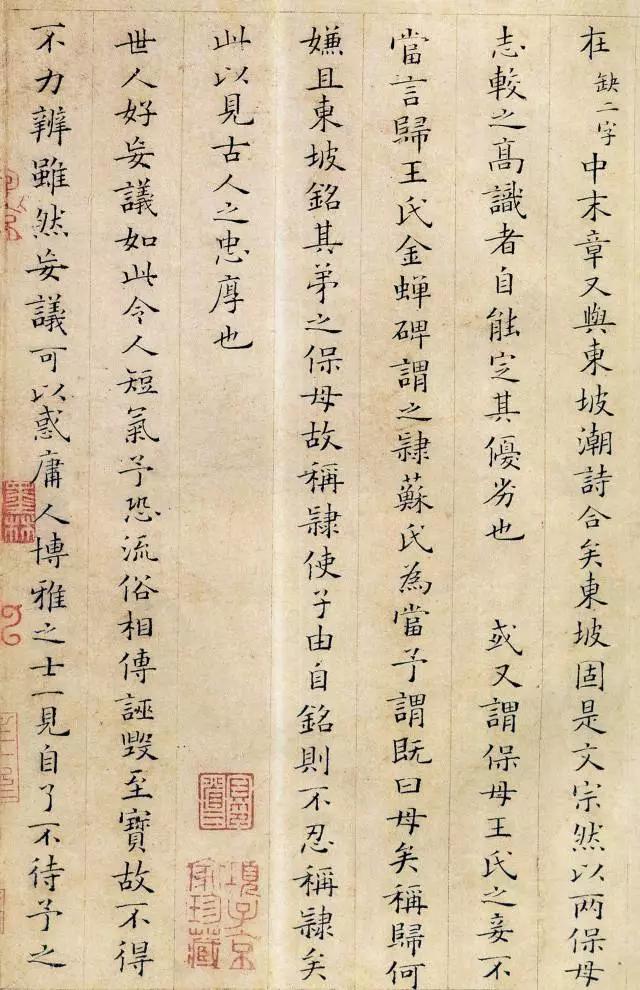 在缺二字中末章又與東坡潮詩合矣東坡固是文宗然以两保母
志較之髙識者自能定其優劣也 或又謂保母王氏之妾不
當言歸王氏金蟬碑謂之隷蘇氏為當予謂既曰母矣稱歸何
嫌且東坡銘其弟之保母故稱隷使子由自銘則不忍稱隷矣
此以見古人之忠厚也
世人好妄議如此令人短氣予恐流俗相傳誣毀至寶故不得
不力辨雖然妄議可以惑庸人博雅之士一見自了不待予之
項子京
家珍藏